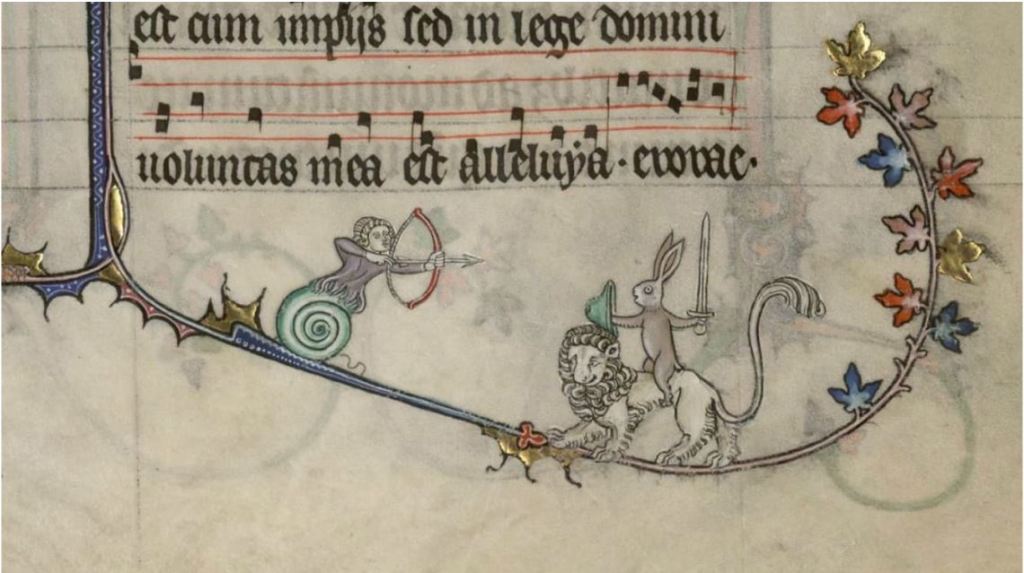 est cum impijs sed in lege domini
uoluntas mea est alleluÿa · evovae ·